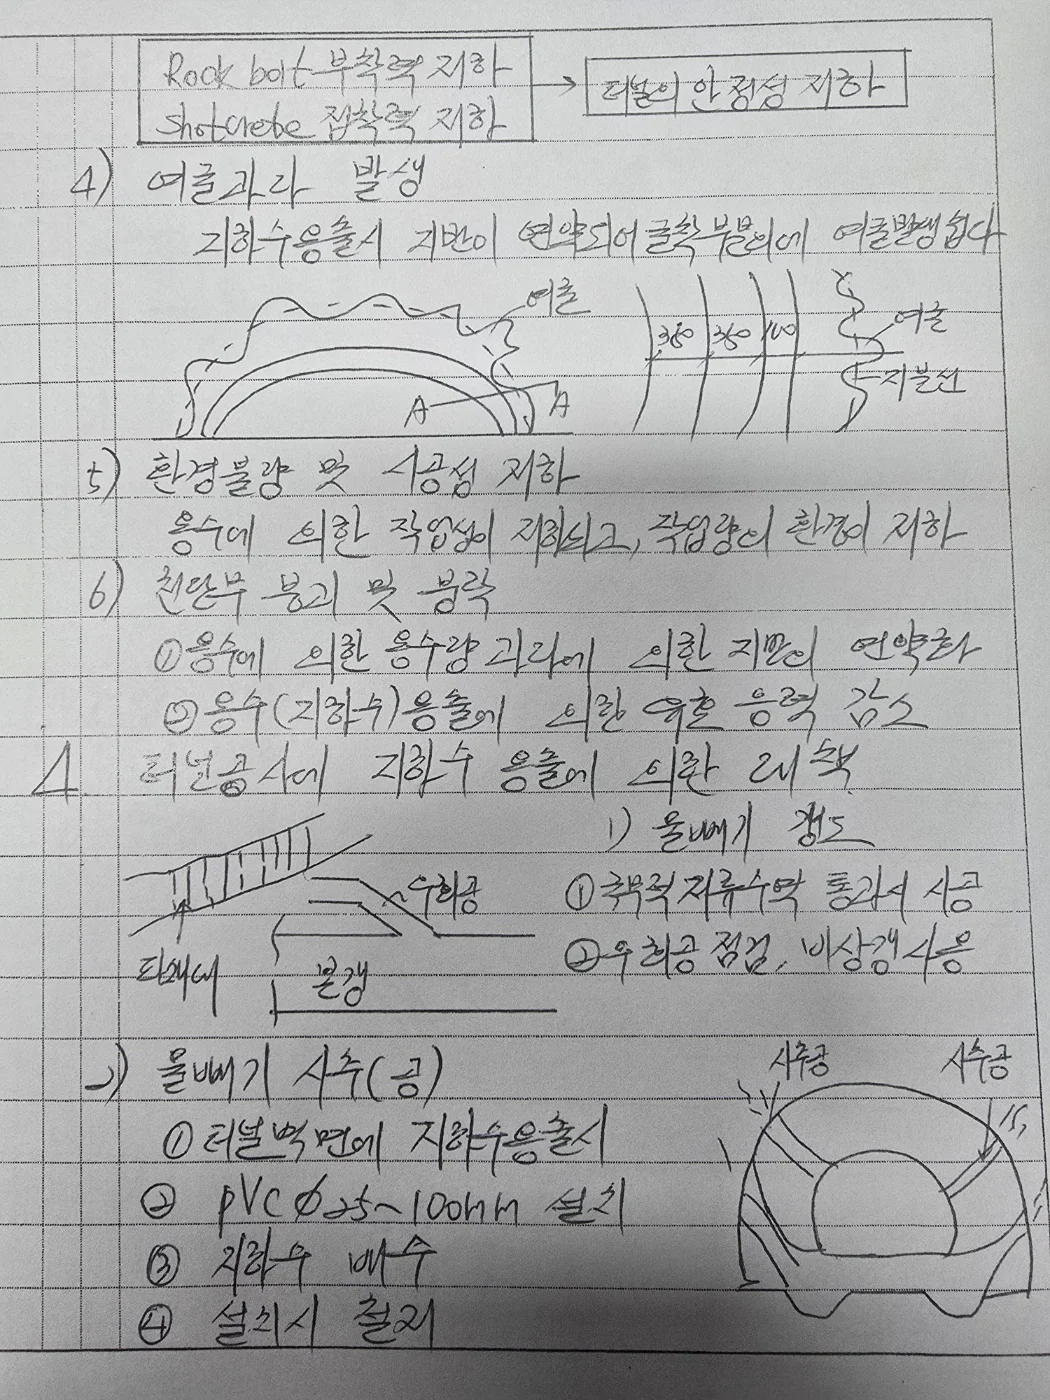 Rock bolt 부착력 저하
shotcrete 접착력 저하
터널의 안정성 저하
4) 여굴과다 발생
지하수용출시 지반이 연약되어 굴착부분의에 여굴발생쉽다
여굴
A A
여굴
지불선
5) 환경불량 및 시공성 저하
용수에 의한 작업성이 저하되고, 작업량의 환경이 저하
6) 천단부 붕괴 및 붕락
① 용수에 의한 용수량 과다에 의한 지반의 연약화
② 용수(지하수)용출에 의한 유효 응력 감소
4 터널공사에 지하수 용출에 의한 대책
1) 물빼기 갱도
우회공
① 국부적 저류수막 통과시 시공
② 우회공 점검, 비상갱사용
파쇄대
본갱
2) 물빼기 시추(공)
시추공 시추공
① 터널벽면에 지하수용출시
② PVC ϕ25~100mm 설치
③ 지하수 배수
④ 설치시 철저